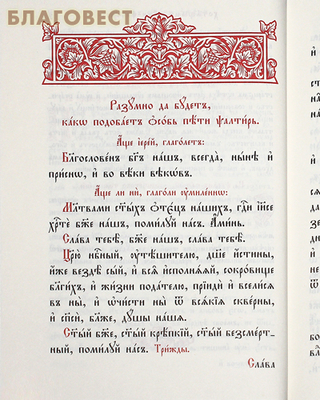 БЛАГОВЕСТ
Разꙋмно да бꙋ́детъ,
ка́кѡ подоба́етъ ѻ҆со́бь пѣ́ти ѱалти́рь.
А҆́ще і҆ере́й, глаго́летъ:
Бл҃гослове́нъ бг҃ъ на́шъ, всегда̀, ны́нѣ и҆
при́снѡ, и҆ во вѣ́ки вѣкѡ́въ.
А҆́ще ли нѝ, глаго́ли ᲂу҆миле́ннѡ:
Мл҃твами ст҃ы́хъ ѻ҆тє́цъ на́шихъ, гдⷭ҇и і҆и҃се
хрⷭ҇тѐ бж҃е на́шъ, поми́лꙋй на́съ. А҆ми́нь.
Сла́ва тебѣ̀, бж҃е на́шъ, сла́ва тебѣ̀.
Цр҃ю̀ нбⷭ҇ный, ᲂу҆тѣ́шителю, дш҃е и҆́стины,
и҆́же вездѣ̀ сы́й, и҆ всѧ̑ и҆сполнѧ́ѧй, сокро́вище
бл҃ги́хъ, и҆ жи́зни пода́телю, прїидѝ и҆ всели́сѧ
въ ны̀, и҆ ѡ҆чи́сти ны̀ ѿ всѧ́кїѧ скве́рны,
и҆ сп҃сѝ, бл҃же, дꙋ́шы на́шѧ.
Ст҃ы́й бж҃е, ст҃ы́й крѣ́пкїй, ст҃ы́й безсме́рт-
ный, поми́лꙋй на́съ. Три́жды.
Сла́ва